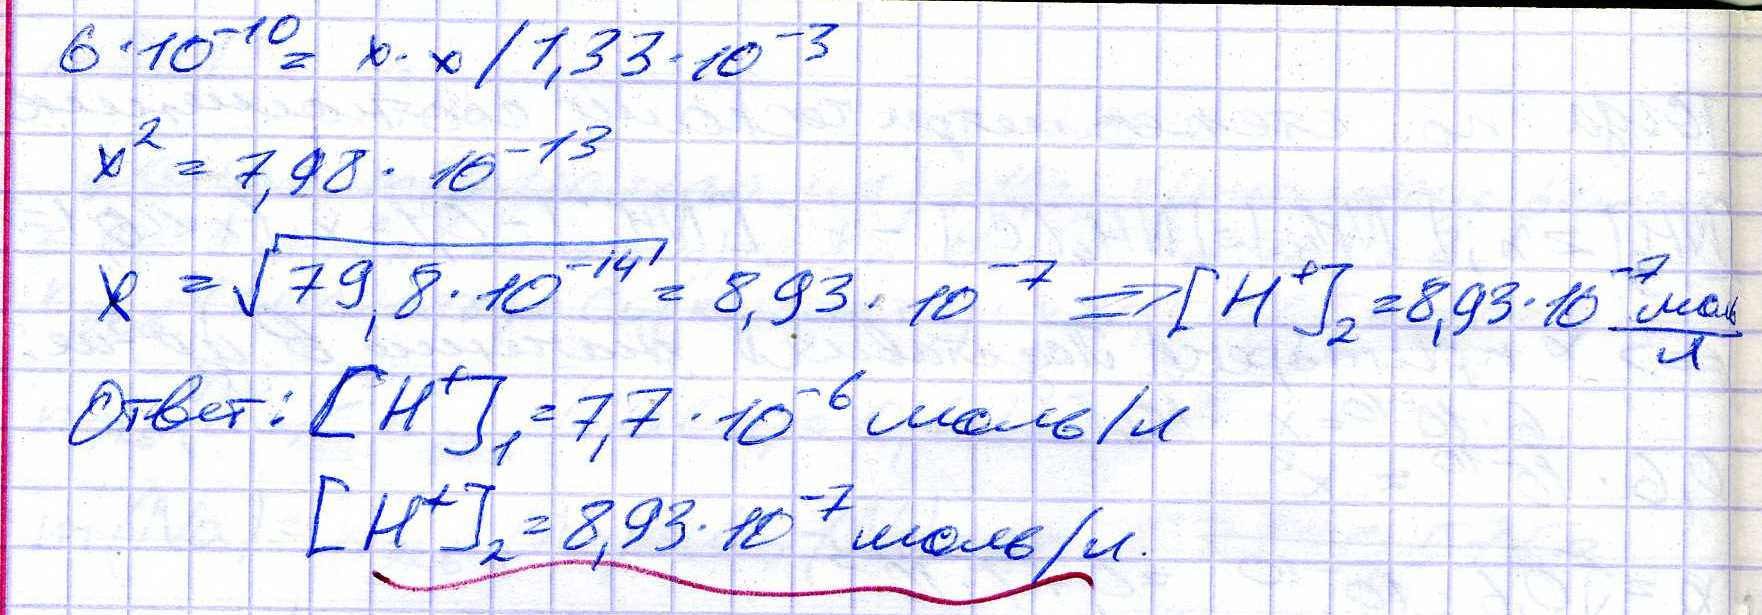 6·10⁻¹⁰ = x·x/1,33·10⁻³
x² = 7,98·10⁻¹³
x = √79,8·10⁻¹⁴ = 8,93·10⁻⁷ ⇒ [H⁺]₂ = 8,93·10⁻⁷ моль/л
Ответ: [H⁺]₁ = 7,7·10⁻⁶ моль/л
[H⁺]₂ = 8,93·10⁻⁷ моль/л.